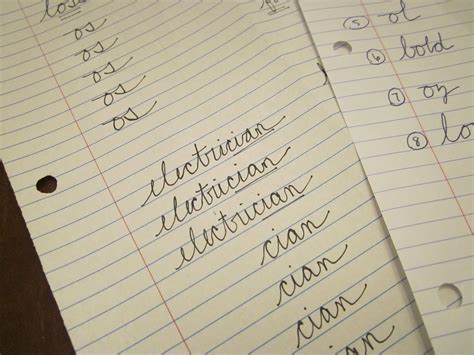 os
os
os
os
os
electrician
electrician
electrician
cian
cian
cian
⑤ ol
⑥ bold
⑦ oy
⑧